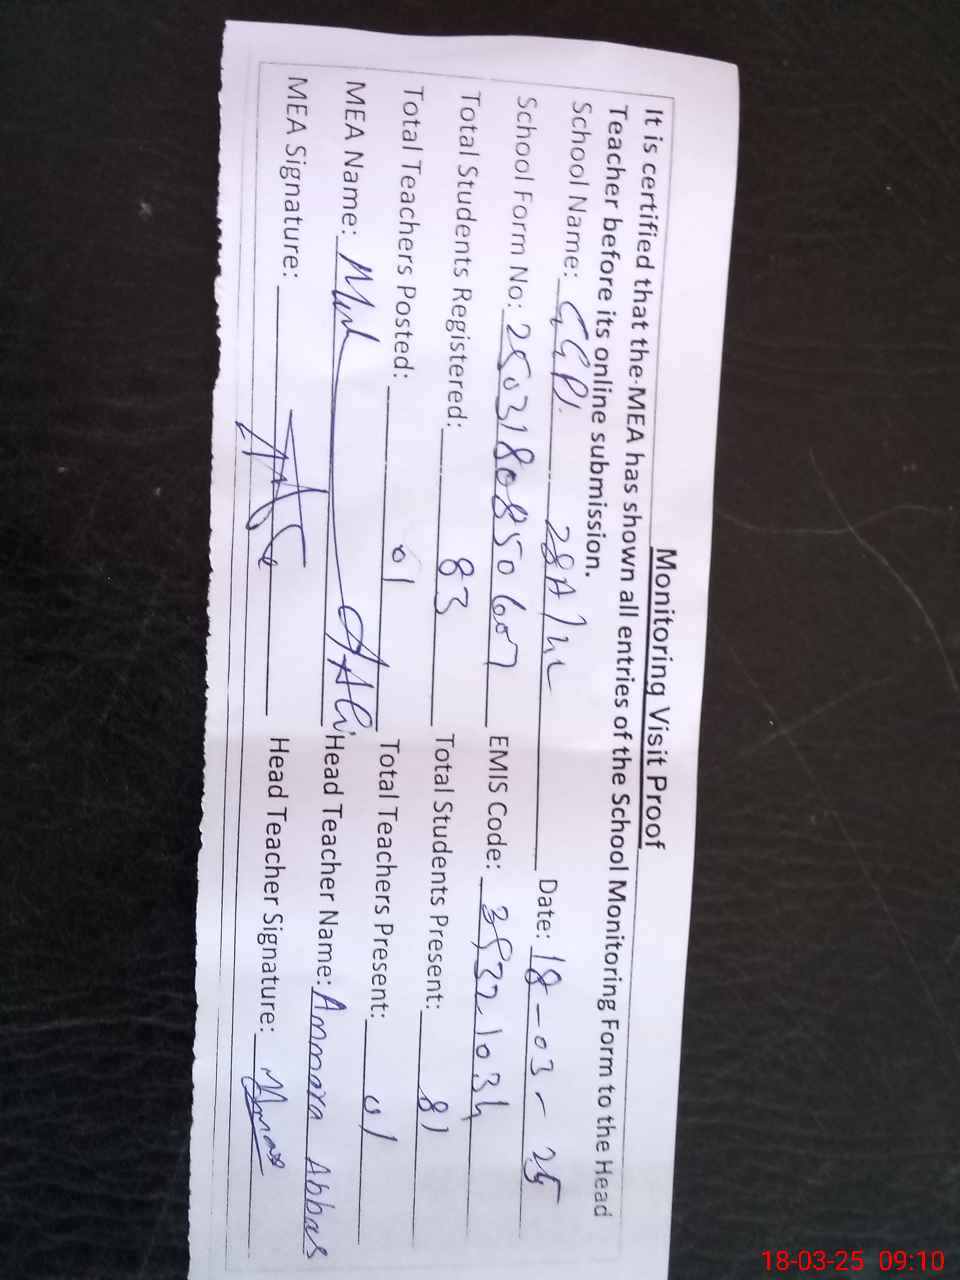 Monitoring Visit Proof
It is certified that the MEA has shown all entries of the School Monitoring Form to the Head
Teacher before its online submission.
School Name: GGPS 28A/ Date: 18-03-25
School Form No: 2503180850607 EMIS Code: 35321034
Total Students Registered: 83 Total Students Present: 81
Total Teachers Posted: 01 Total Teachers Present: 01
MEA Name: Ali Head Teacher Name: Ammara Abbas
MEA Signature: Head Teacher Signature:
18-03-25 09:10